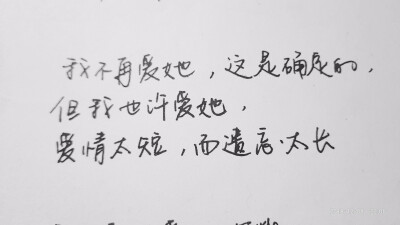 我不再爱她，这是确定的，
但我也许爱她，
爱情太短，而遗言太长